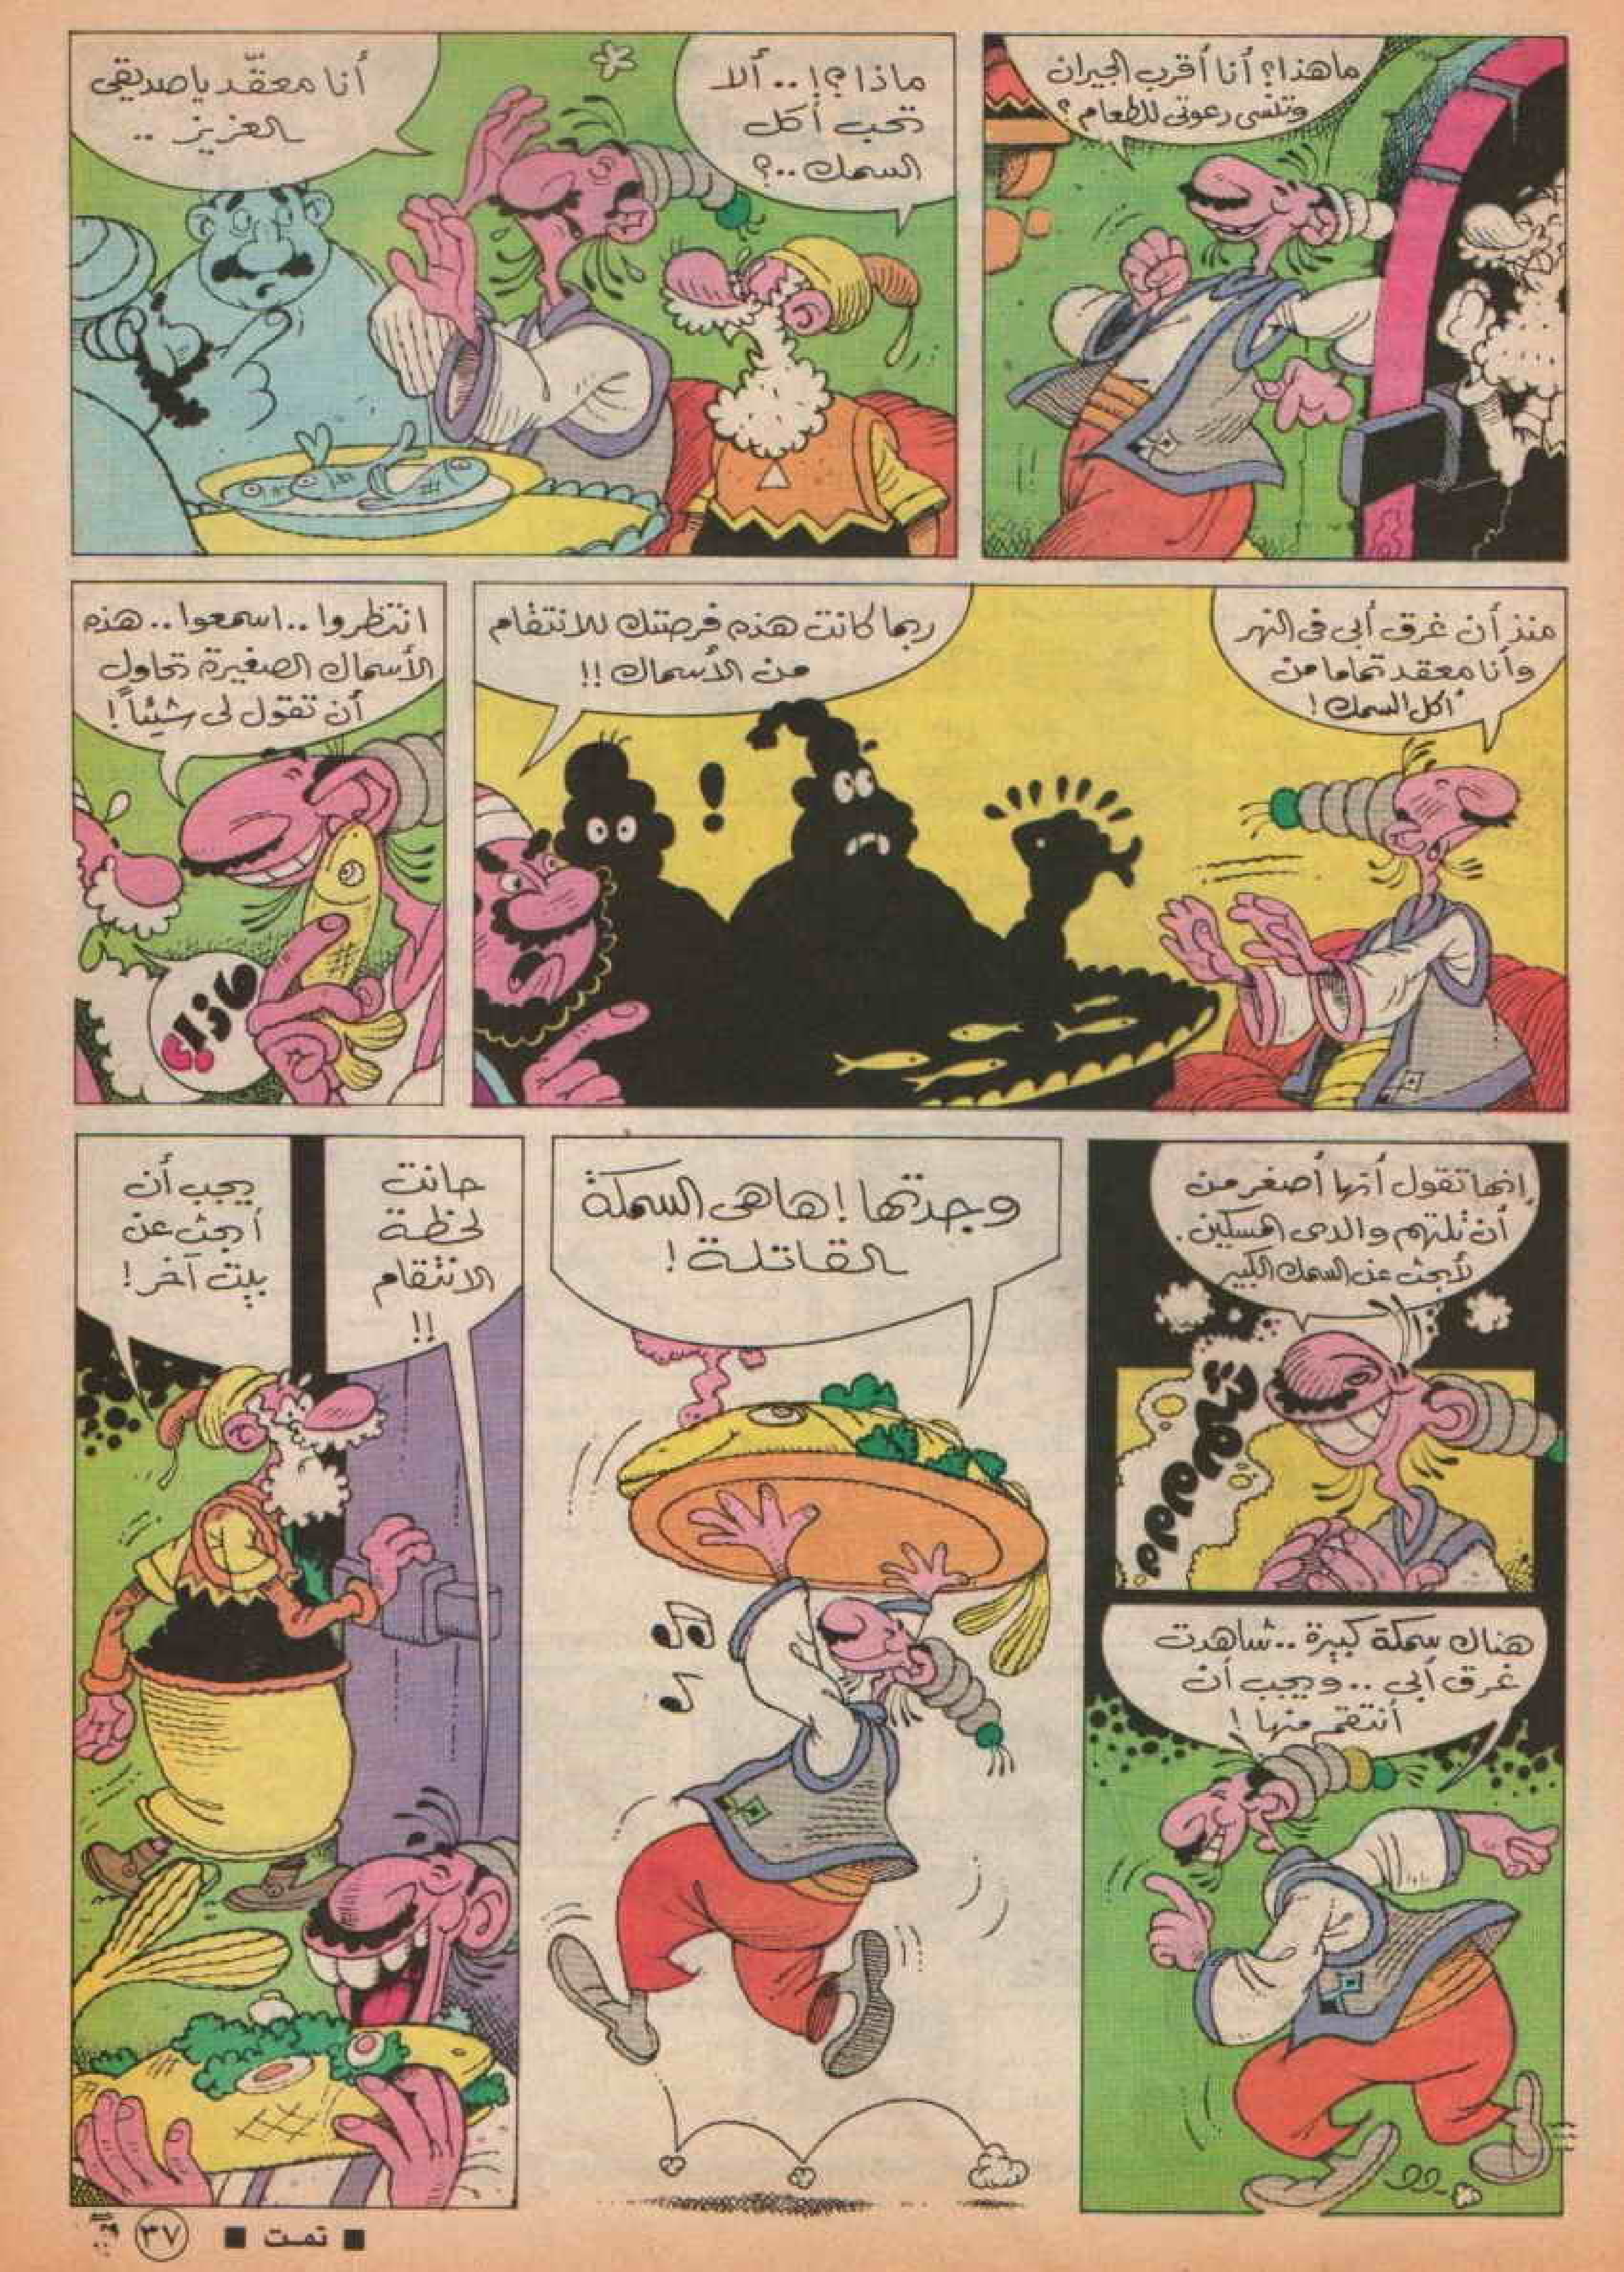 ماهذا؟ أنا أقرب الجيران
وتنسى دعوتى للطعام؟
ماذا؟!.. ألا
تحب أكل
السمك..؟
أنا معقّد يا صديقى
العزيز ..
منذ أن غرق أبى فى النهر
وأنا معقد تماما من
أكل السمك!
ربما كانت هذه فرصتك للانتقام
من الأسماك!!
انتظروا.. اسمعوا.. هذه
الأسماك الصغيرة تحاول
أن تقول لى شيئاً!
ماذا؟
إنها تقول أنها أصغر من
أن تلتهم والدى المسكين.
لأبحث عن السمك الكبير
هناك سمكة كبيرة.. شاهدت
غرق أبى.. ويجب أن
أنتقم منها!
وجدتها! هاهى السمكة
القاتلة!
حانت
لحظة
الانتقام
!!
يجب أن
أبحث عن
بيت آخر!
■ تمت ■ ٣٧